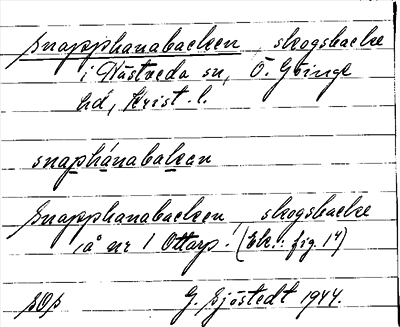 snapphanabacken, skogsbacke
i Nästveda sn, Ö. Göinge
hd, Krist. l.
snaphánabaken
Snapphanabacken, skogsbacke
å nr 1 Ottarp. (Ek.: fig. 14)
pop G. Sjöstedt 1944.